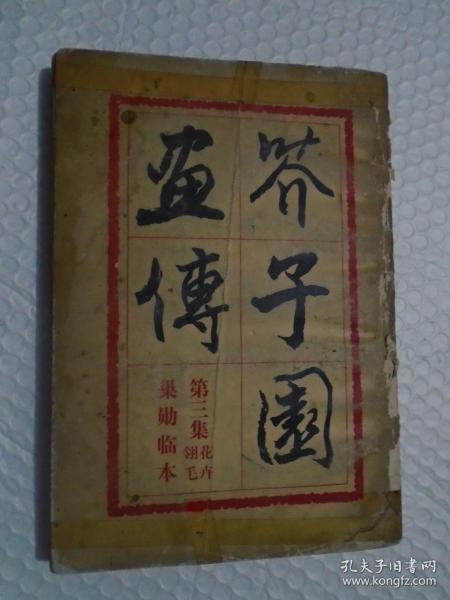 芥子園
畫傳
第三集
花卉
翎毛
巢勋临本
孔夫子旧书网
www.kongfz.com